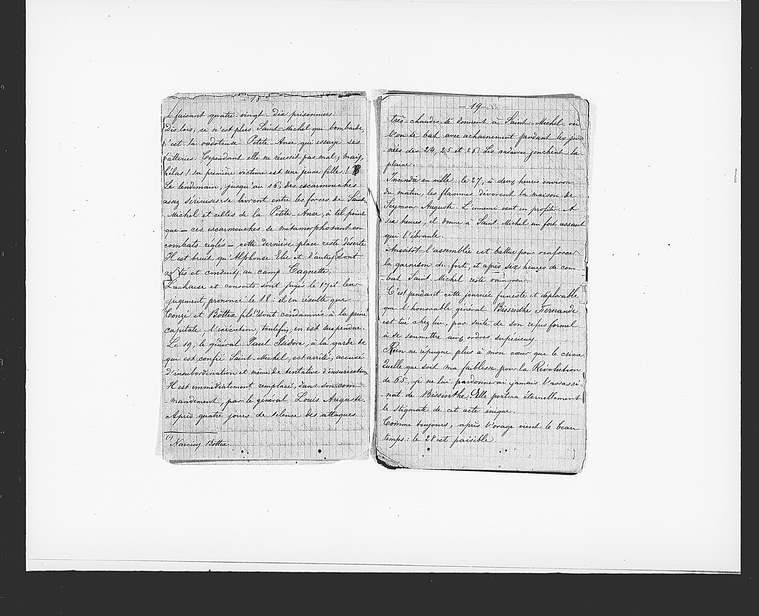 faisant quatre vingt dix prisonniers.
Dès lors, ce n'est plus Saint-Michel qui bombarde,
c'est la redoutence Petite Anse qui essaye ses
batteries. Cependant elle ne réussit pas mal; mais,
hélas! sa première victime est une jeune fille!
Le lendemain, jusqu'au 16, des escarmouches
assez sérieuses se livrent entre les forces de Saint
Michel et celles de la Petite Anse, à tel point
que — ces escarmouches se métamorphosant en
combats réglés — cette dernière place reste déserte
Il est bruit qu'Alphonse Elie et d'autres sont
arrêtés et conduits au camp Cagnette.
Zacharie et consorts sont jugés le 17 et leur
jugement prononcé le 18: il en résulte que
Congé et Bottex fils sont condamnés à la peine
capitale. L'exécution, toutefois, en est suspendue.
Le 19, le général Paul Isidore, à la garde de
qui est confié Saint-Michel, est arrêté, accusé
d'insubordination et même de tentative d'insurrection
Il est immédiatement remplacé, dans son com-
mandement, par le général Louis Auguste.
Après quatre jours de silence des attaques
Narcisse Bottex
— 19 —
très chaudes, se donnent à Saint Michel où
l'on se bat avec acharnement pendant les jour
nées des 24, 25 et 26. Les cadavres jonchent la
plaine.
Incendie en ville: le 27, à deux heures environ
du matin, les flammes dévorent la maison de
Seymour Auguste. L'ennemi veut en profiter. A
six heures, il donne à Saint Michel un fort assaut
qui l'ébranle.
Aussitôt l'assemblée est battue pour renforcer
la garnison du fort, et après six heures de com-
bat Saint Michel reste vainqueur.
C'est pendant cette journée funeste et déplorable
que l'honorable général Bissainthe Fernande
est tué chez lui, par suite de son refus formel
à se soumettre aux ordres supérieurs.
Rien ne répugne plus à mon cœur que le crime
Quelle que soit ma faiblesse pour la Révolution
de 65, je ne lui pardonnerai jamais l'assassi-
nat de Bissainthe. Elle portera éternellement
le stigmate de cet acte inique.
Comme toujours, après l'orage vient le beau
temps: le 28 est paisible.